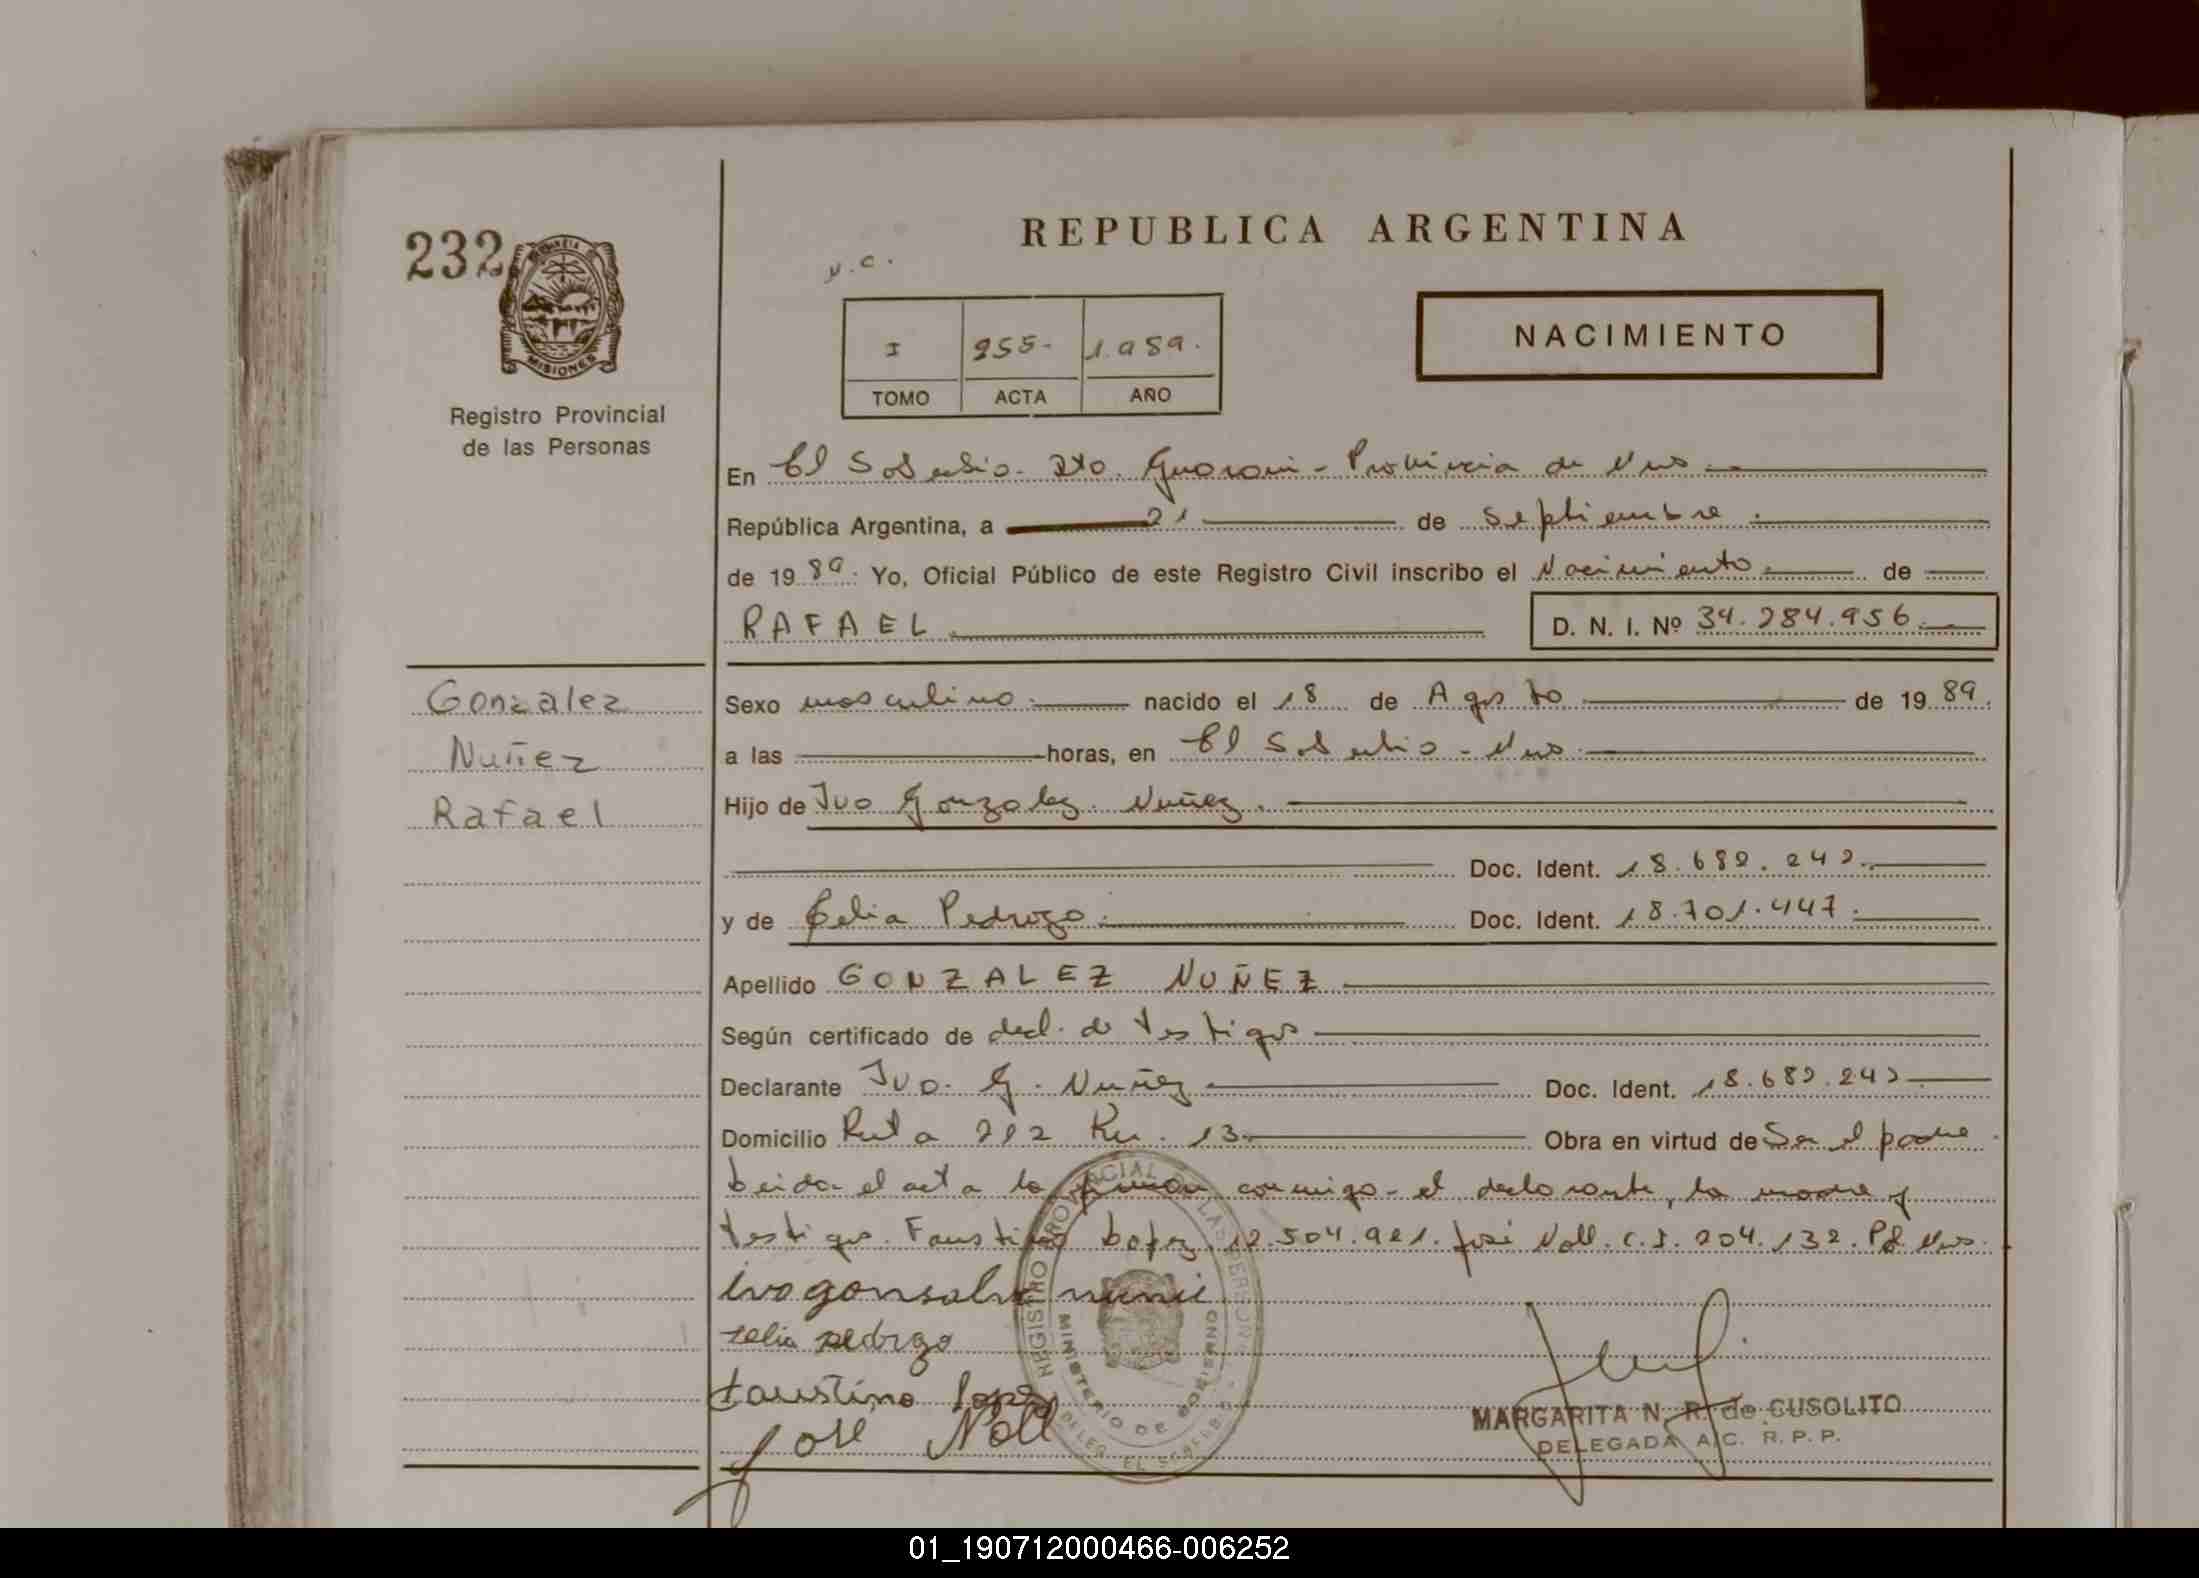 232
PROVINCIA
MISIONES
Registro Provincial
de las Personas
REPUBLICA ARGENTINA
N.C.
I 255- 1.989.
TOMO ACTA AÑO
NACIMIENTO
En El Soberbio- Dto. Guarani- Provincia de Mnes
República Argentina, a 21 de Septiembre
de 1989. Yo, Oficial Público de este Registro Civil inscribo el Nacimiento de
RAFAEL
D. N. I. Nº 34.284.956.
Gonzalez
Nuñez
Rafael
Sexo masculino nacido el 18 de Agosto de 1989.
a las horas, en El Soberbio - Mnes.
Hijo de Ivo Gonzalez Nuñez.
Doc. Ident. 18.682.242.
y de Celia Pedrozo. Doc. Ident. 18.701.447.
Apellido GONZALEZ NUÑEZ
Según certificado de decl. de testigos
Declarante Ivo. G. Nuñez Doc. Ident. 18.682.242
Domicilio Ruta 212 Km. 13 Obra en virtud de Ser el padre
Leida el acta la firman conmigo- el declarante, la madre y
testigos. Faustino Lopez 12.504.921. José Noll. C.I. 204.132. Pd. Mnes.
ivo gonsalve nunie
celia pedrozo
faustino lopez
José Noll
REGISTRO PROVINCIAL DE LAS PERSONAS
MINISTERIO DE GOBIERNO
DELEG. EL SOBERBIO
MARGARITA N. R. de CUSOLITO
DELEGADA A/C. R.P.P.
01_190712000466-006252